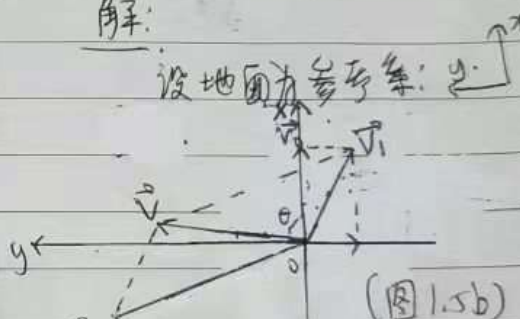 解:
设地面为参考系: y x
x
V V₁
V θ
y
o
(图1.5b)